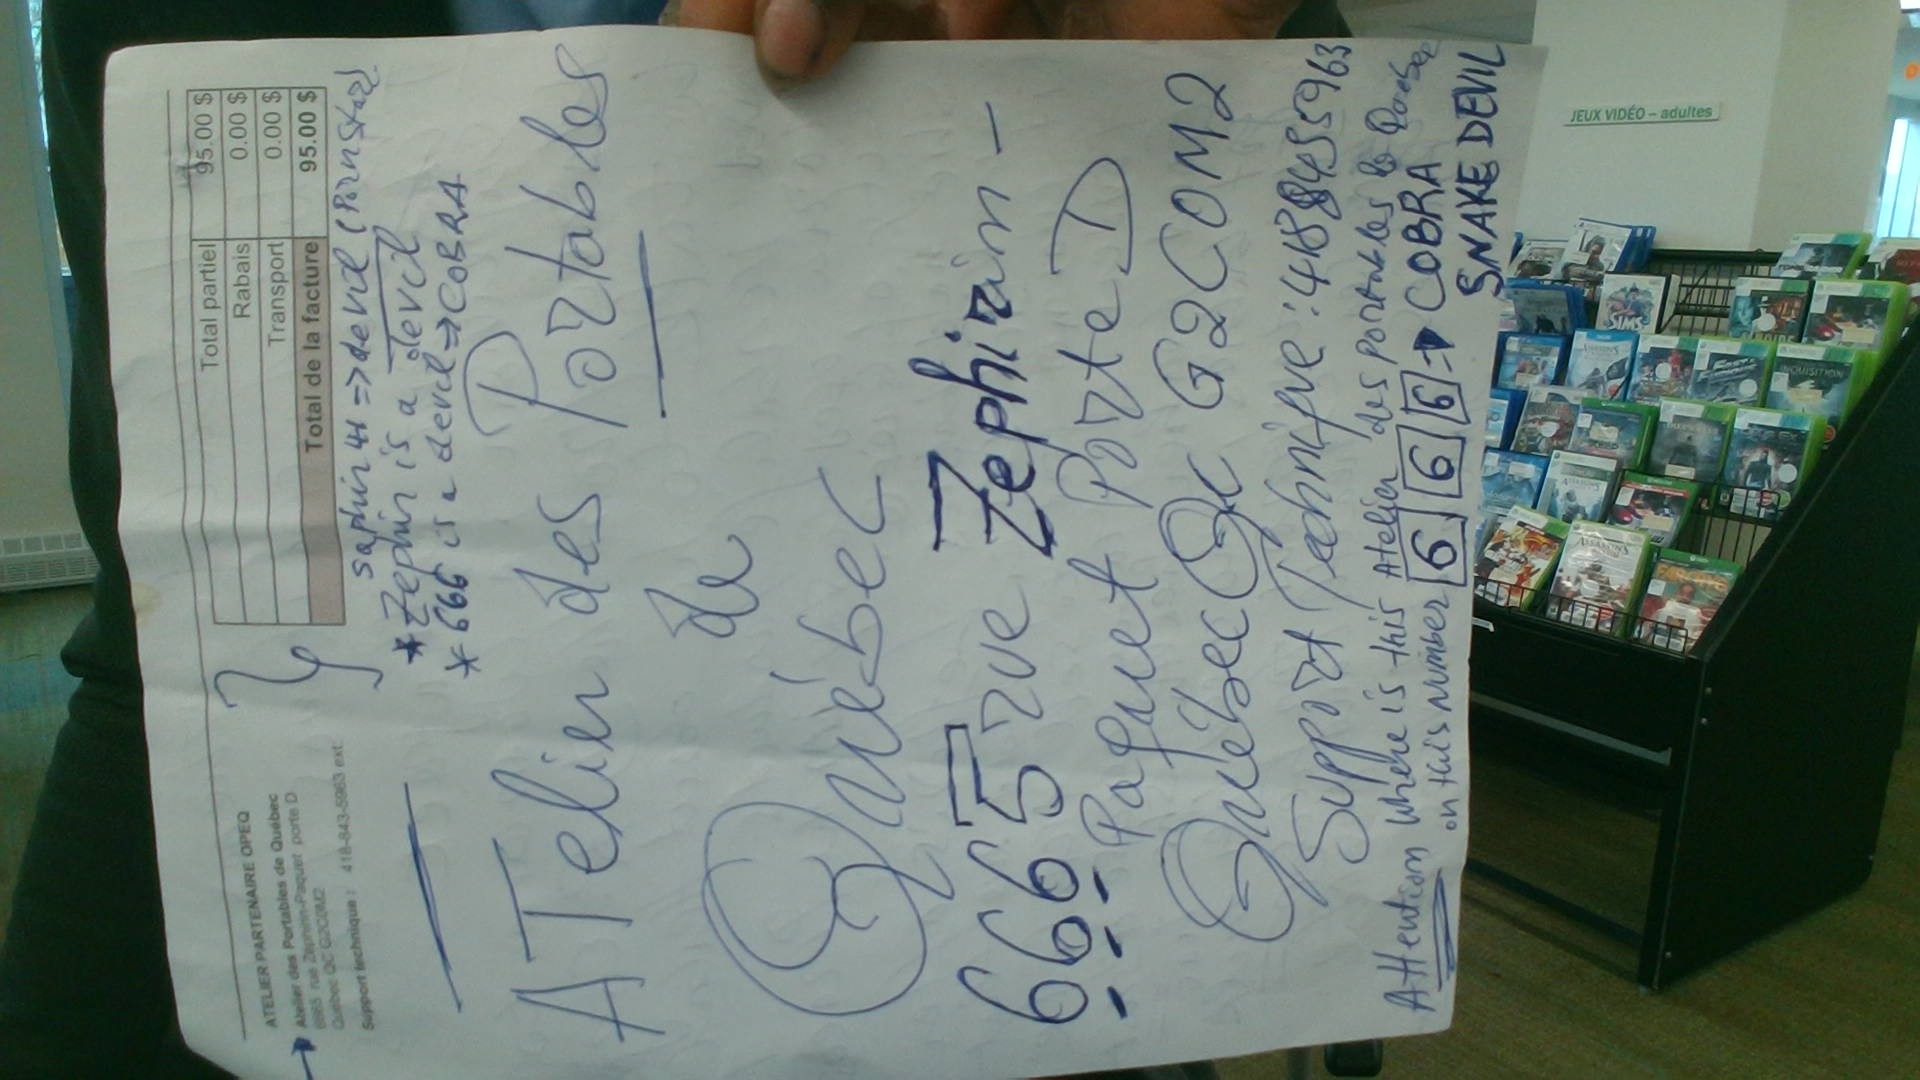 Total partiel 95.00 $
Rabais 0.00 $
Transport 0.00 $
Total de la facture 95.00 $
ATELIER PARTENAIRE OPEQ
Atelier des Portables de Québec
6665 rue Zéphirin-Paquet porte D
Québec QC G2C0M2
Support technique : 418-843-5963 ext.
saphir => devil (Pornstar)
* Zephir is a devil
* 666 is a devil => COBRA
ATelier des Portables
de
Québec
6665 rue Zephirin -
Paquet Porte D
Québec Qc G2C0M2
Support Technique : 4188435963
Attention Where is this Atelier des portables
on this number 6 6 6 → COBRA
SNAKE DEVIL
JEUX VIDÉO – adultes
SIMS
INQUISITION